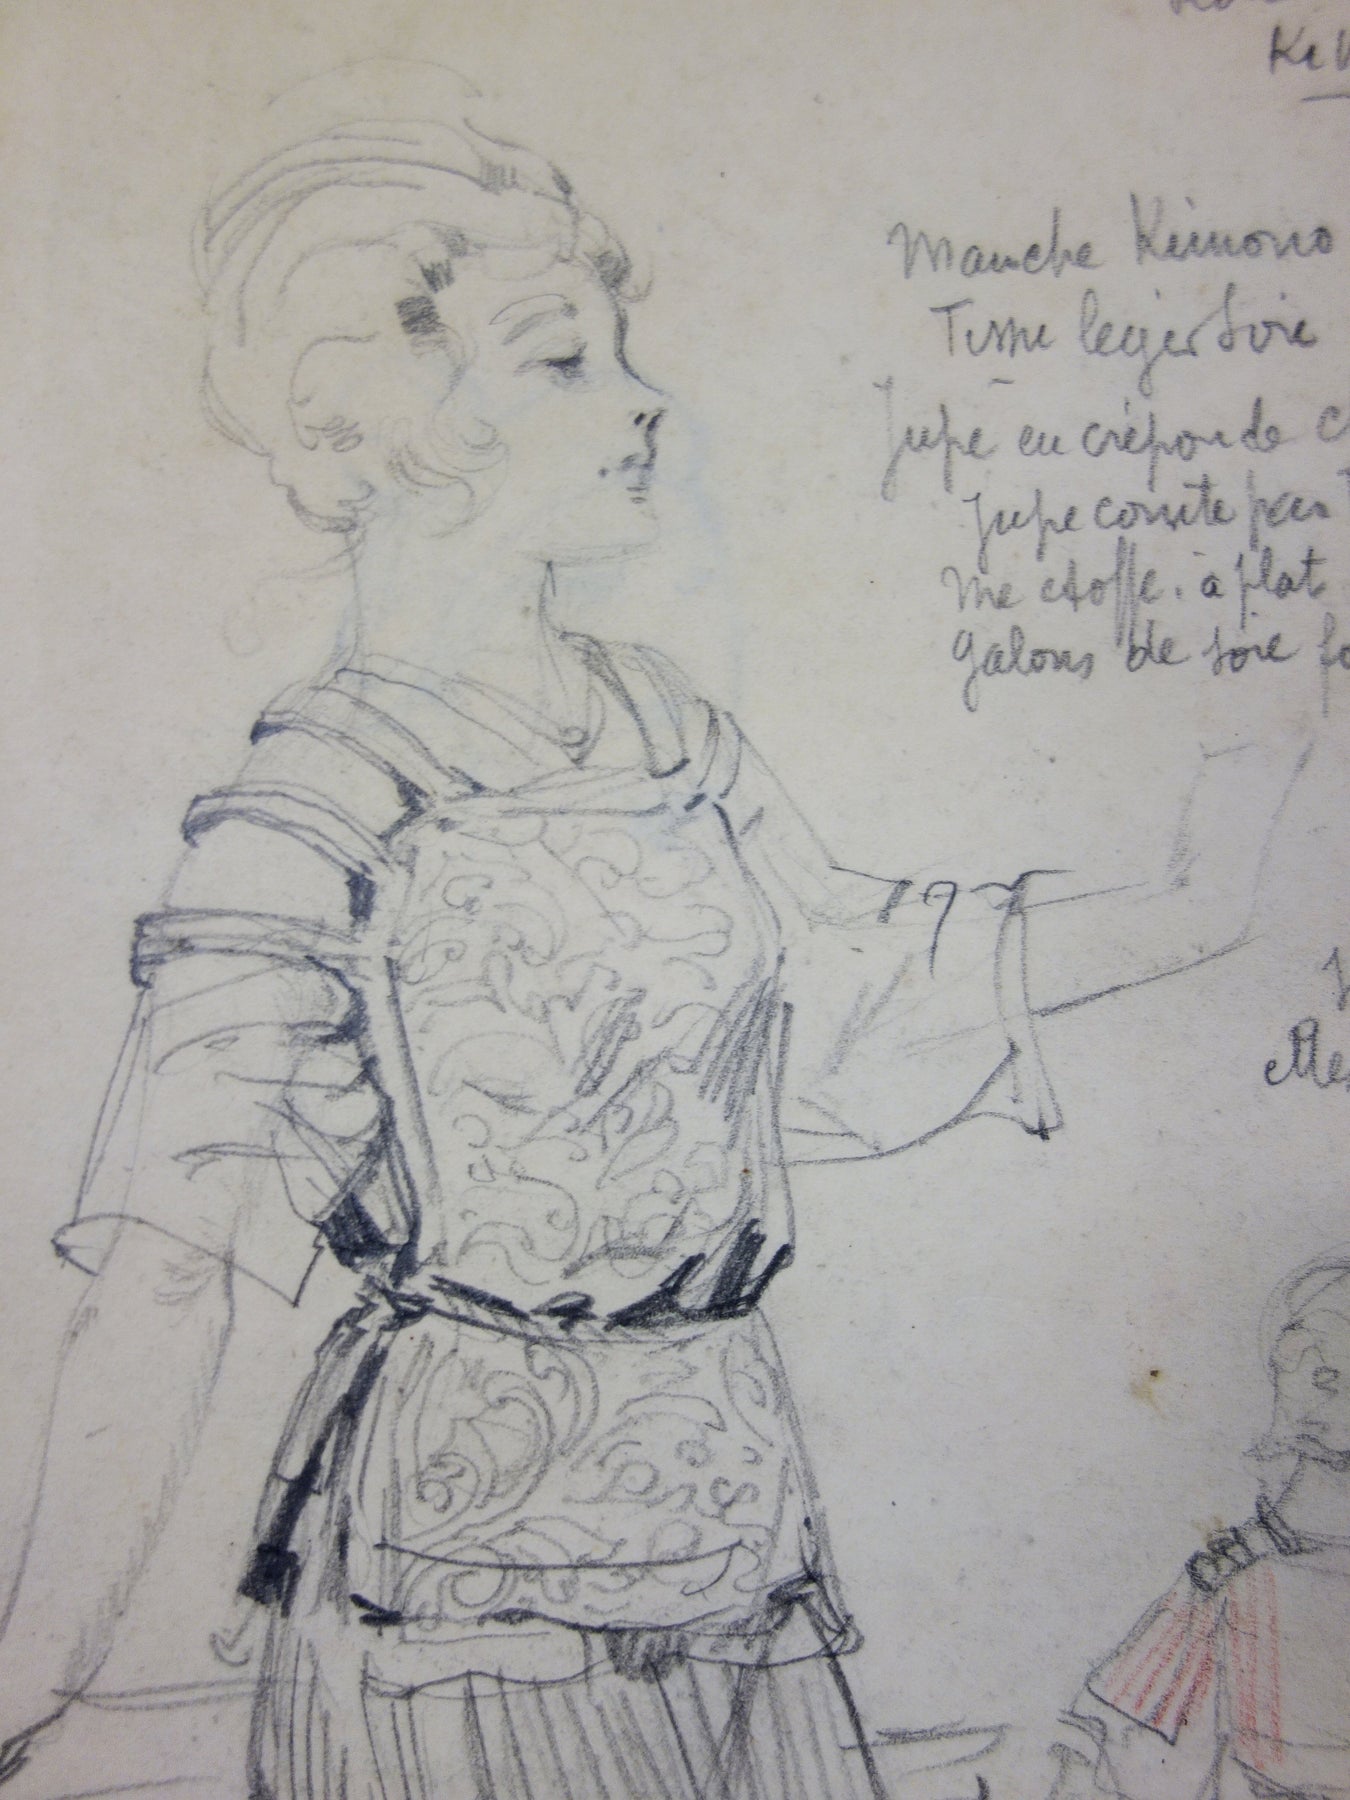 Manche Kimono
Tissu leger Soie
Jupe en crépon de
Jupe courte pas
me etoffe. à plat
galons de soie